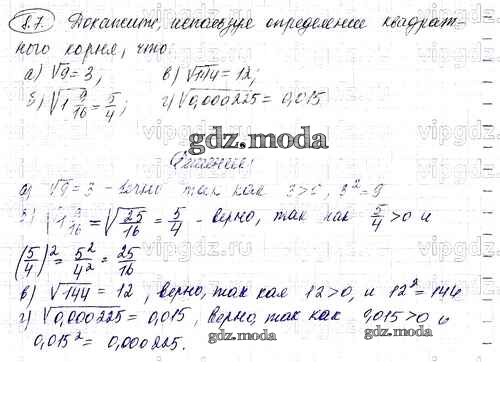 8.7 Докажите, используя определение квадрат-
ного корня, что:
а) √9 = 3, в) √144 = 12;
б) √1 9/16 = 5/4; г) √0,000225 = 0,015
gdz.moda
Решение:
а) √9 = 3 - верно так как 3>0, 3² = 9
б) √1 9/16 = √25/16 = 5/4 - верно, так как 5/4 > 0 и
(5/4)² = 5²/4² = 25/16
в) √144 = 12, верно, так как 12>0, и 12² = 144
г) √0,000225 = 0,015, верно, так как 0,015>0 и
0,015² = 0,000225.
gdz.moda
gdz.moda